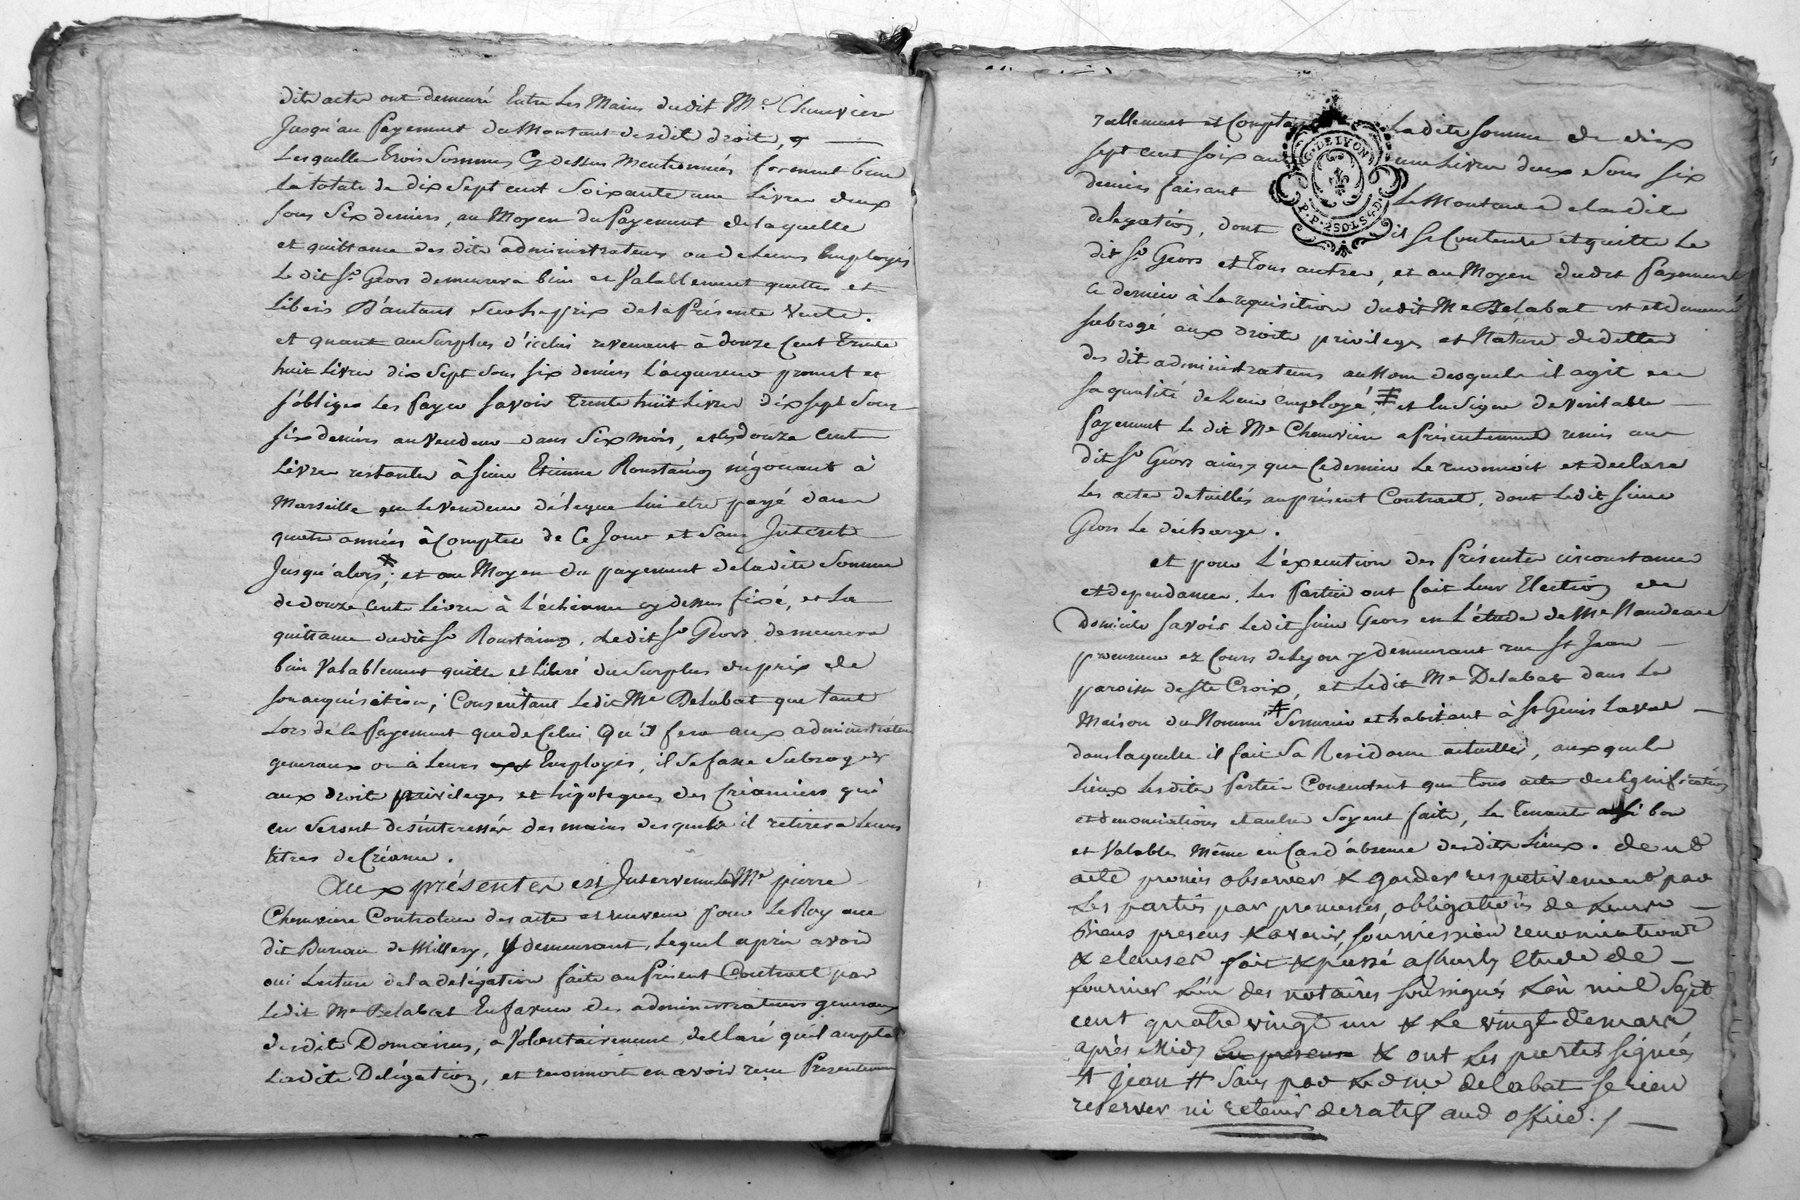 dits actes ont demeuré Entre Les Mains dudit Me. Chenvier
Jusqu'au Payement du Montant desdits droit, &
Lesquelle Trois Sommes Cy dessus Mentionnées forment bien
La totale de dix Sept cent Soixante une Livre deux
Sous Six deniers, au Moyen du Payement de laquelle
et quittance des dits administrateurs ou de Leurs Employés
Le dit Sr. Geors demeurera bien et Valablement quitte et
Libéré D'autant Sur le prix de la Présente Vente.
et quant au Surplus d'icelui revenant à Douze Cent Trente
huit Livres dix Sept Sous Six deniers L'acquereur promet et
s'oblige Les Payer Savoir Trente huit Livres dix Sept Sous
Six deniers au Vendeur dans Six mois, et les douze Cent
Livres restantes à Sieur Etienne Roustaing négociant à
Marseille que le vendeur délègue lui être payé dans
quatre années à Compter de Ce Jour et Sans Intérêt
Jusqu'alors; et au Moyen du payement de la dite Somme
de douze Cents Livres à L'échéance cy dessus fixé, et La
quittance dudit Sr. Roustaing, Ledit Sr. Geors demeurera
bien Valablement quitte et Libéré du Surplus du prix de
Son acquisition; Consentant Ledit Me. Delabat que tant
Lors de le Payement que de Celui Qu'il fera aux administrateurs
generaux ou à Leurs Employés, il Se fasse Subroger
aux droits privileges et hipoteques des Créanciers qui
en Seront désintéressés des mains desquels il retirera Leurs
titres de Créance.
Aux présentes est Intervenu Me. pierre
Chenviere Controleur des actes et receveur pour Le Roy au
dit Bureau de Millery, y demeurant, Lequel après avoir
oui Lecture de La délégation faite au Présent Contract par
Ledit Me. Delabat En faveur des administrateurs generaux
desdits Domaines, a Volontairement déclaré qu'il accepte
Ladite Délégation, et reconnoit en avoir reçu Présentement
réellement et Comptant Ladite Somme de dix
sept cent soixante une Livres deux Sous Six
deniers faisant Le Montant de la dite
G. DE LYON
P.P. 2 SOLS 4 D.
delegation, dont il Se Contente et quitte Le
dit Sr. Geors et Tous autres, et au Moyen dudit Payement
Ce dernier à La requisition dudit Me Delabat est et demeure
subrogé aux droits privileges et Nature de dette
des dit administrateurs au Nom desquels il agit en
Sa qualité de Leur employé, ‡ et en Signe de Veritable
Payement Le dit Me. Chenviere a Présentement remis au
dit Sr. Geors ainsy que Ce dernier Le reconnoit et declare
Les actes detaillés au présent Contract, dont Ledit Sieur
Geors Le décharge.
et pour L'éxecution des Présentes circonstances
et dependances, Les Parties ont fait Leur Election de
Domicile Savoir Ledit Sieur Geors en L'étude de Me. Naudeau
procureur ez Cours de Lyon y demeurant rue St Jean
paroisse de Ste Croix, et Ledit Me. Delabat dans La
Maison du Nommé ‡ Semmier et habitant à St Genis Laval
dans laquelle il fait Sa Residence actuelle, auxquels
Lieux Lesdites Parties Consentent que Tous actes de Signification
et denonciations et autres Soyent faits, Le Tenant ainsi bon
et Valables Même en Cas d'absence desdits Lieux. dont
acte promis observer & garder respectivement par
Les parties par promesses, obligations de Leurs
Biens presens & avenir, soumission renonciations
& clauses fait & passé a Charly étude de
fournier L'un des notaires soussignés L'an mil Sept
cent quatre vingt un & Le vingt de mars
après Midy en presence & ont Les parties signées
‡ jean ‡ Sans par Led. Me. delabat se rien
reserver ni retenir de ratif aud office. / —